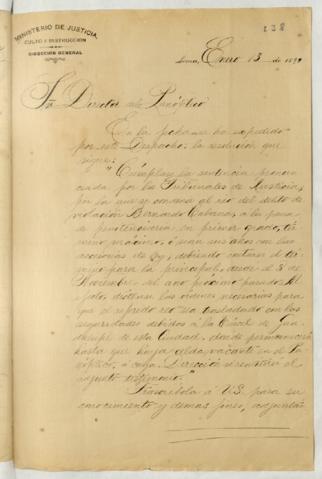 138
MINISTERIO DE JUSTICIA,
CULTO E INSTRUCCION
DIRECCION GENERAL
Lima, Enero 13 de 189
Sr. Director del Panóptico
En la fecha se ha expedido
por este Despacho la resolucion que
sigue:
"Cúmplase la sentencia pronun
ciada por los Tribunales de Justicia,
por la que se condena al reo del delito de
violación Bernardo Cabrera, a la pena
de penitenciaria en primer grado, tér
mino máximo, ó sean seis años con las
accesorias de ley, debiendo contarse el tér
mino para la principal, desde el 8 de
Noviembre del año próximo pasado. Al
efecto, díctense las órdenes necesarias para
que el referido reo sea trasladado con las
seguridades debidas á la Cárcel de Gua
dalupe de esta Ciudad, donde permanecerá
hasta que haya celda vacante en el Pa
nóptico, á cuya Dirección se remitirá el
adjunto testimonio."
Trascríbola á US. para su
conocimiento y demas fines, adjuntán